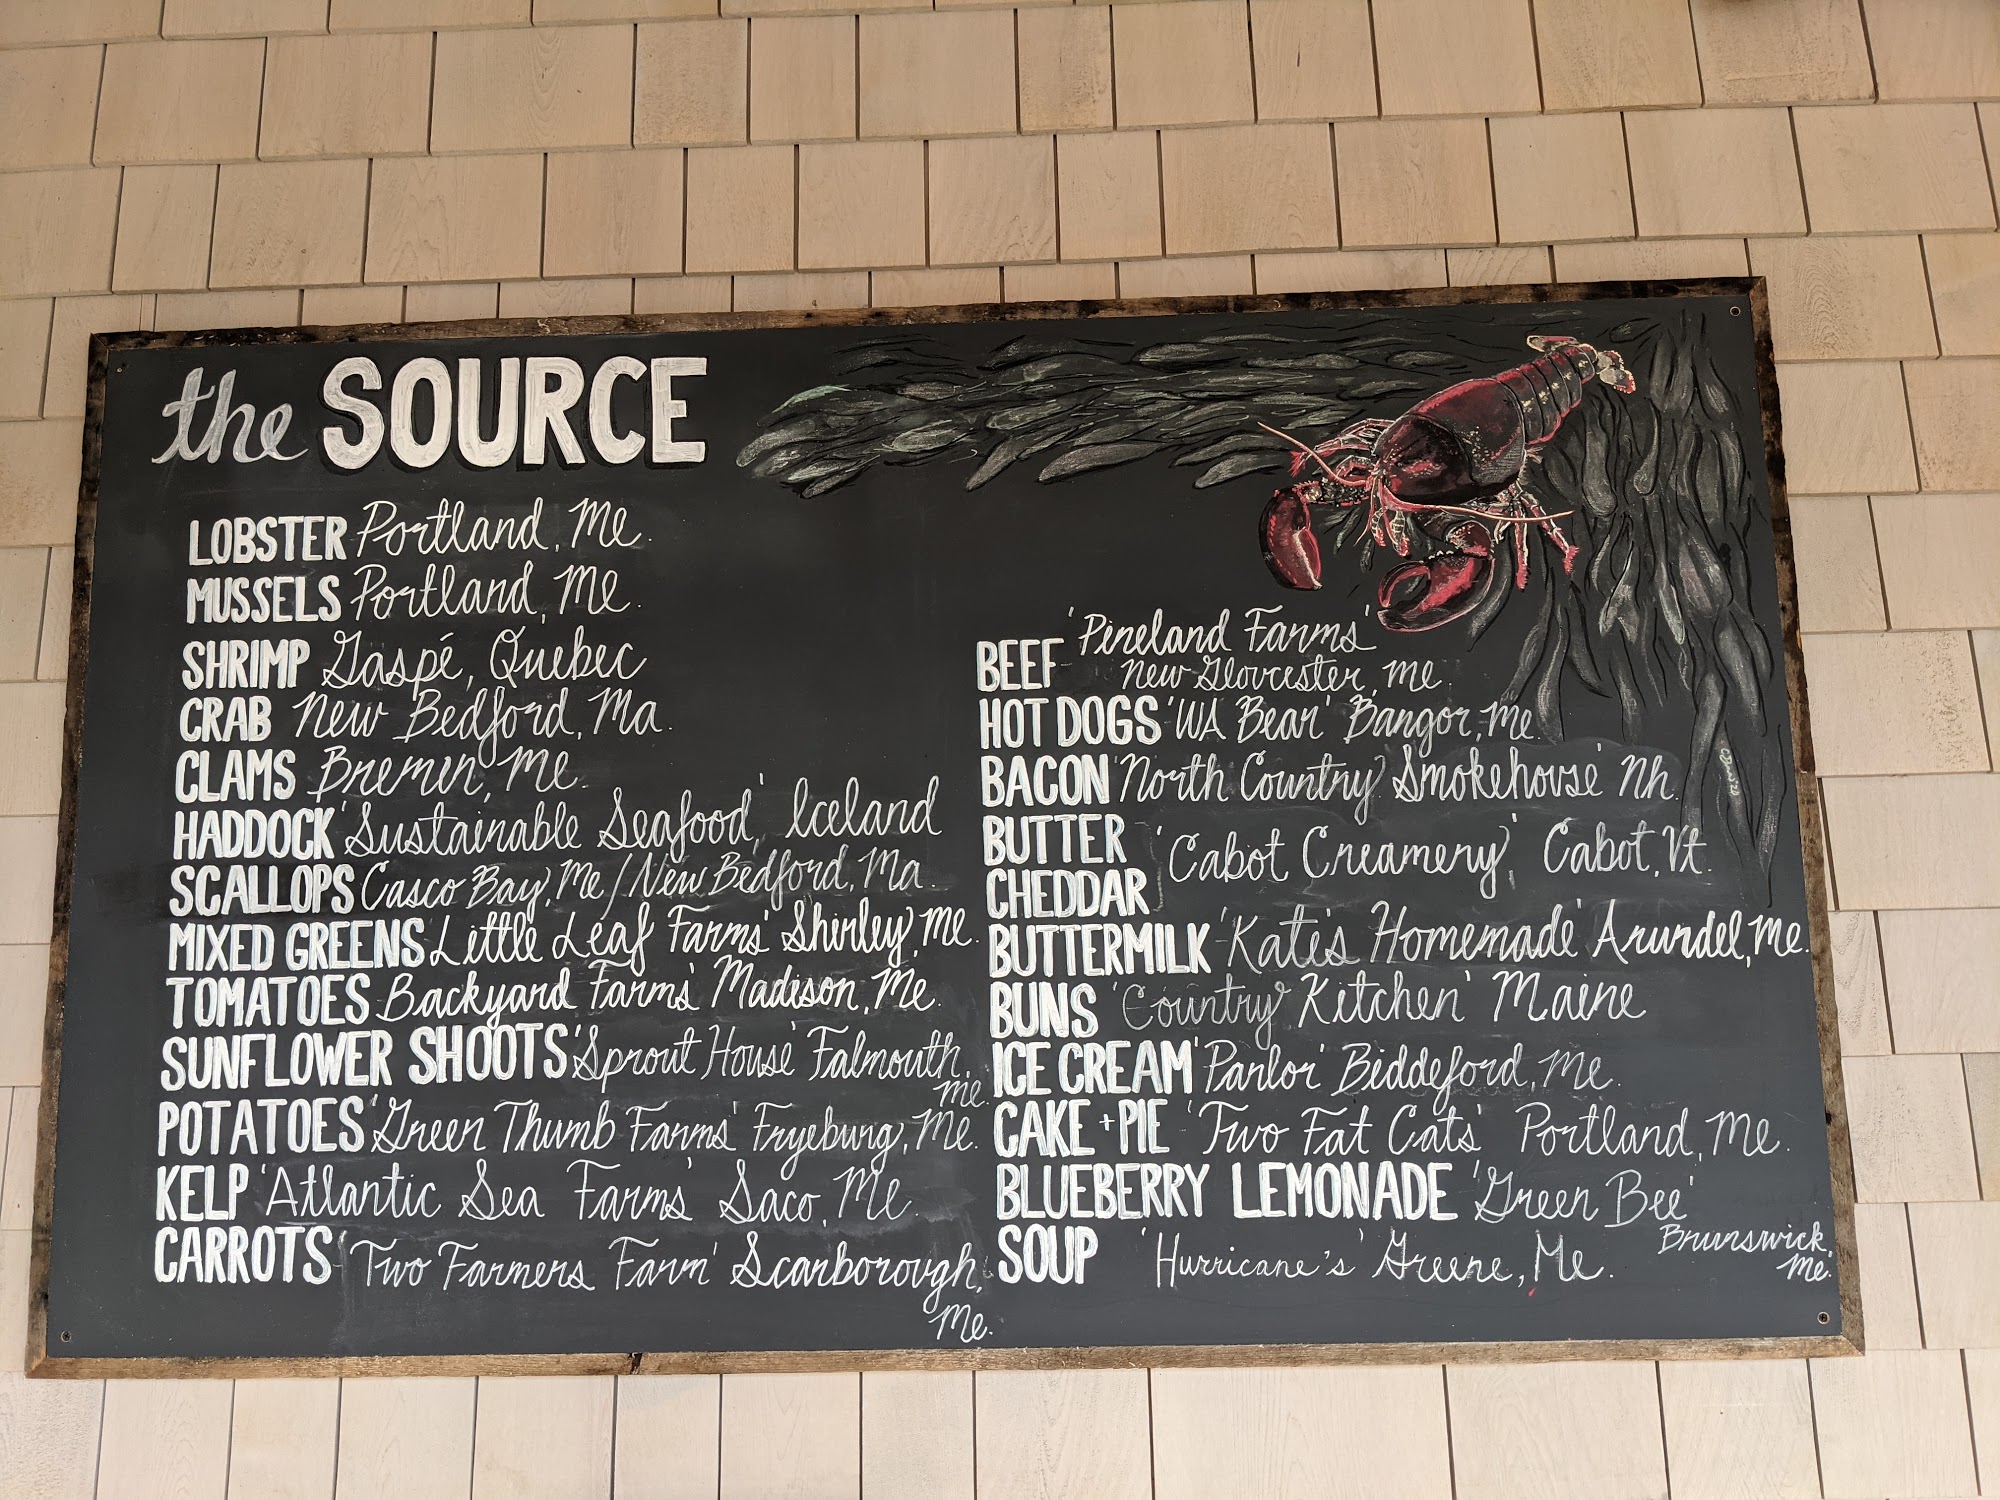 the SOURCE
LOBSTER Portland, Me.
MUSSELS Portland, Me.
SHRIMP Gaspé, Quebec
CRAB New Bedford, Ma.
CLAMS Bremen, Me.
HADDOCK 'Sustainable Seafood', Iceland
SCALLOPS Casco Bay, Me/New Bedford, Ma.
MIXED GREENS 'Little Leaf Farms' Shirley, Me.
TOMATOES Backyard Farms' Madison, Me.
SUNFLOWER SHOOTS 'Sprout House' Falmouth,
Me.
POTATOES 'Green Thumb Farms' Fryeburg, Me.
KELP 'Atlantic Sea Farms' Saco, Me.
CARROTS 'Two Farmers Farm' Scarborough,
Me.
BEEF 'Pineland Farms'
New Gloucester, Me.
HOT DOGS 'WA Bean' Bangor, Me.
BACON 'North Country Smokehouse' Nh.
BUTTER
CHEDDAR 'Cabot Creamery' Cabot, Vt.
BUTTERMILK 'Kate's Homemade' Arundel, Me.
BUNS 'Country Kitchen' Maine
ICE CREAM 'Parlor' Biddeford, Me.
CAKE + PIE 'Two Fat Cats' Portland, Me.
BLUEBERRY LEMONADE 'Green Bee'
Brunswick,
Me.
SOUP 'Hurricane's' Greene, Me.